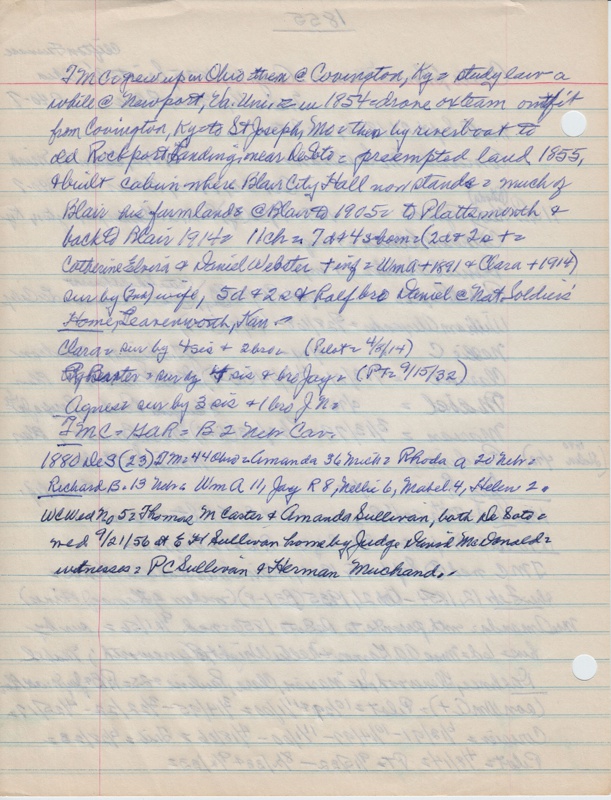 1855
TMC grew up in Ohio then @ Covington, Ky = study law a
while @ Newport, Va. Univ = in 1854 = drove ox team outfit
from Covington, Ky to St Joseph, Mo = then by riverboat to
old Rockport Landing, near DeSoto = preempted land 1855,
& built cabin where Blair City Hall now stands = much of
Blair his farmland = @ Blair to 1905 = to Plattsmouth &
back to Blair 1914 = 11 ch = 7 d + 4 s born = (2d & 2s + =
Catherine Elvira & Daniel Webster + inf = Wm A + 1891 & Clara + 1914)
sur by (2nd) wife, 5d & 2s & half bro Daniel @ Nat. Soldiers'
Home, Leavenworth, Kan.
Clara = sur by 4 sis & 2 bro = (Pilot = 4/8/14)
Baxter = sur by 4 sis & bro Jay = (PT = 9/15/32)
Agnes = sur by 3 sis & 1 bro J N =
TMC = GAR = B 2 Neb Cav.
1880 De S (23) TM = 44 Ohio = Amanda 36 Mich = Rhoda A 20 Neb =
Richard B. 13 Neb = Wm A 11, Jay R 8, Nellie 6, Mabel 4, Helen 2 =
WC Wed No 5 = Thomas M Carter & Amanda Sullivan, both De Soto =
wed 9/21/56 at E H Sullivan home by Judge Daniel McDonald =
witnesses = P C Sullivan & Herman Muchand.